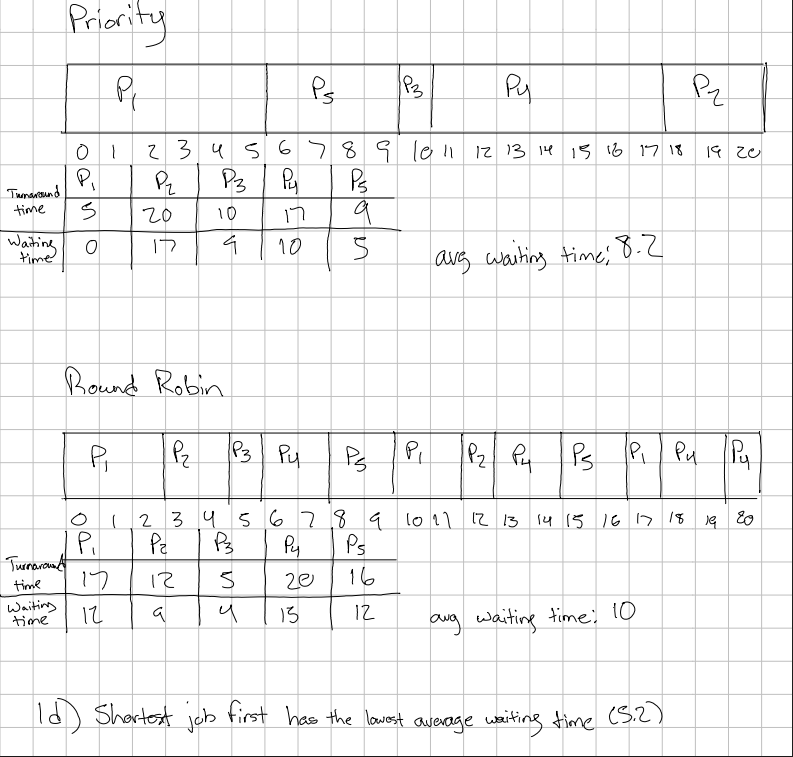 Priority
P1 P5 P3 P4 P2
0 1 2 3 4 5 6 7 8 9 10 11 12 13 14 15 16 17 18 19 20
P1 P2 P3 P4 P5
Turnaround time 5 20 10 17 9
Waiting time 0 17 9 10 5
avg waiting time: 8.2
Round Robin
P1 P2 P3 P4 P5 P1 P2 P4 P5 P1 P4 P4
0 1 2 3 4 5 6 7 8 9 10 11 12 13 14 15 16 17 18 19 20
P1 P2 P3 P4 P5
Turnaround time 17 12 5 20 16
Waiting time 12 9 4 13 12
avg waiting time: 10
1d) Shortest job first has the lowest average waiting time (5.2)